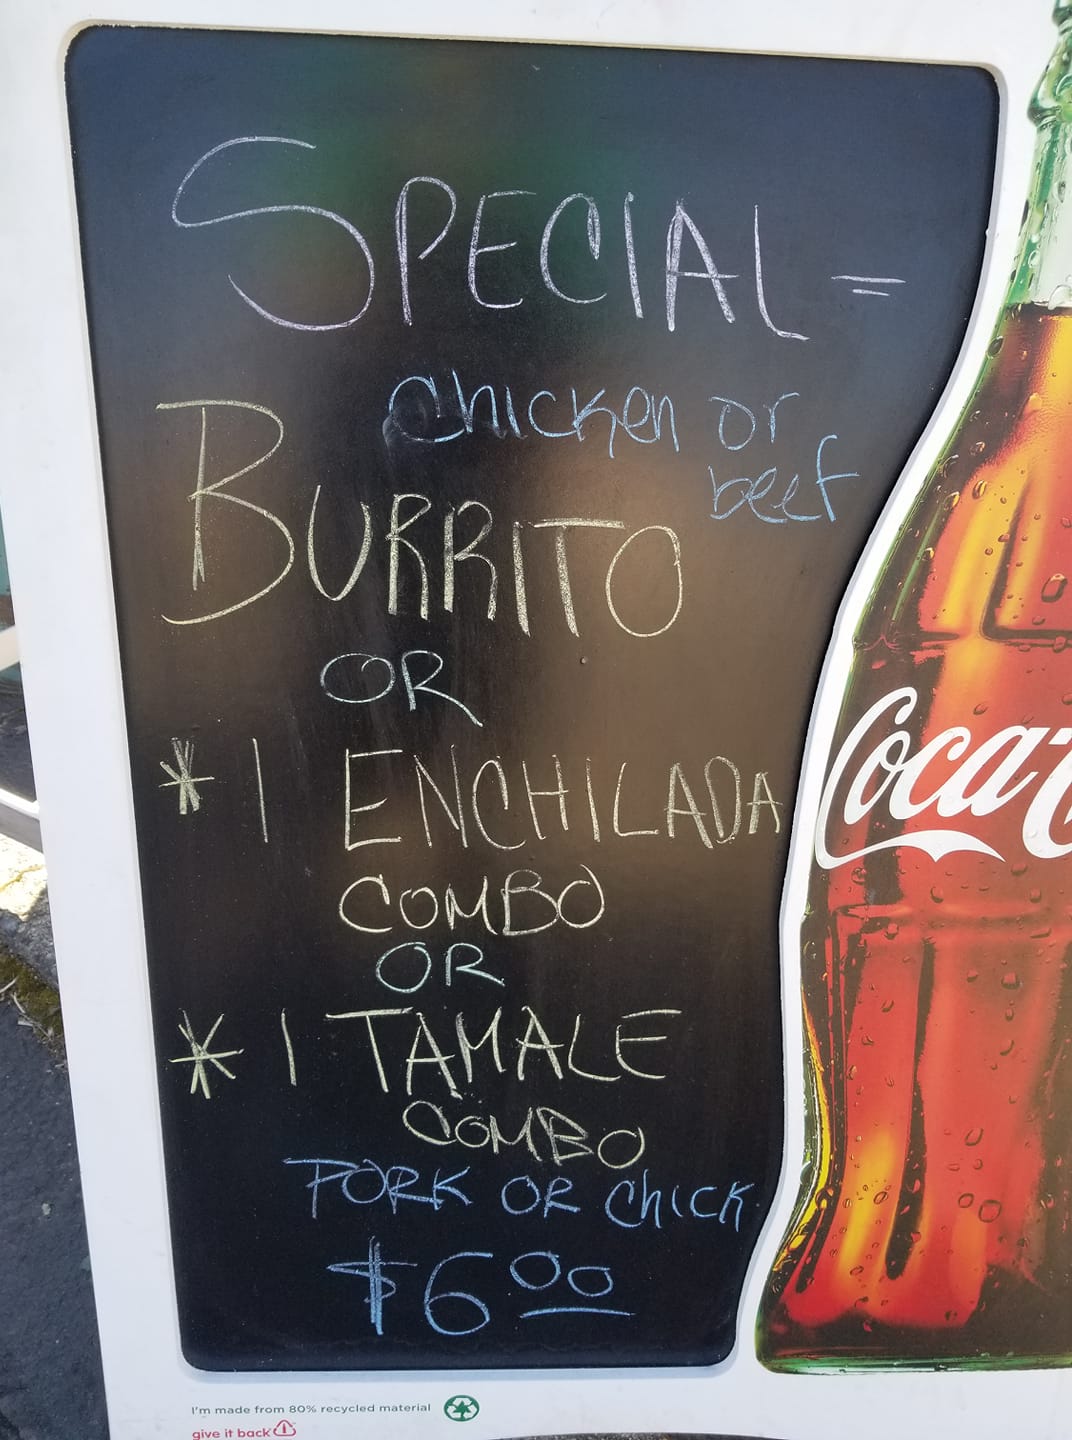 SPECIAL =
chicken or
beef
BURRITO
OR
* 1 ENCHILADA
COMBO
OR
* 1 TAMALE
COMBO
PORK OR CHICK.
$6.00
Coca-C
I'm made from 80% recycled material
give it back